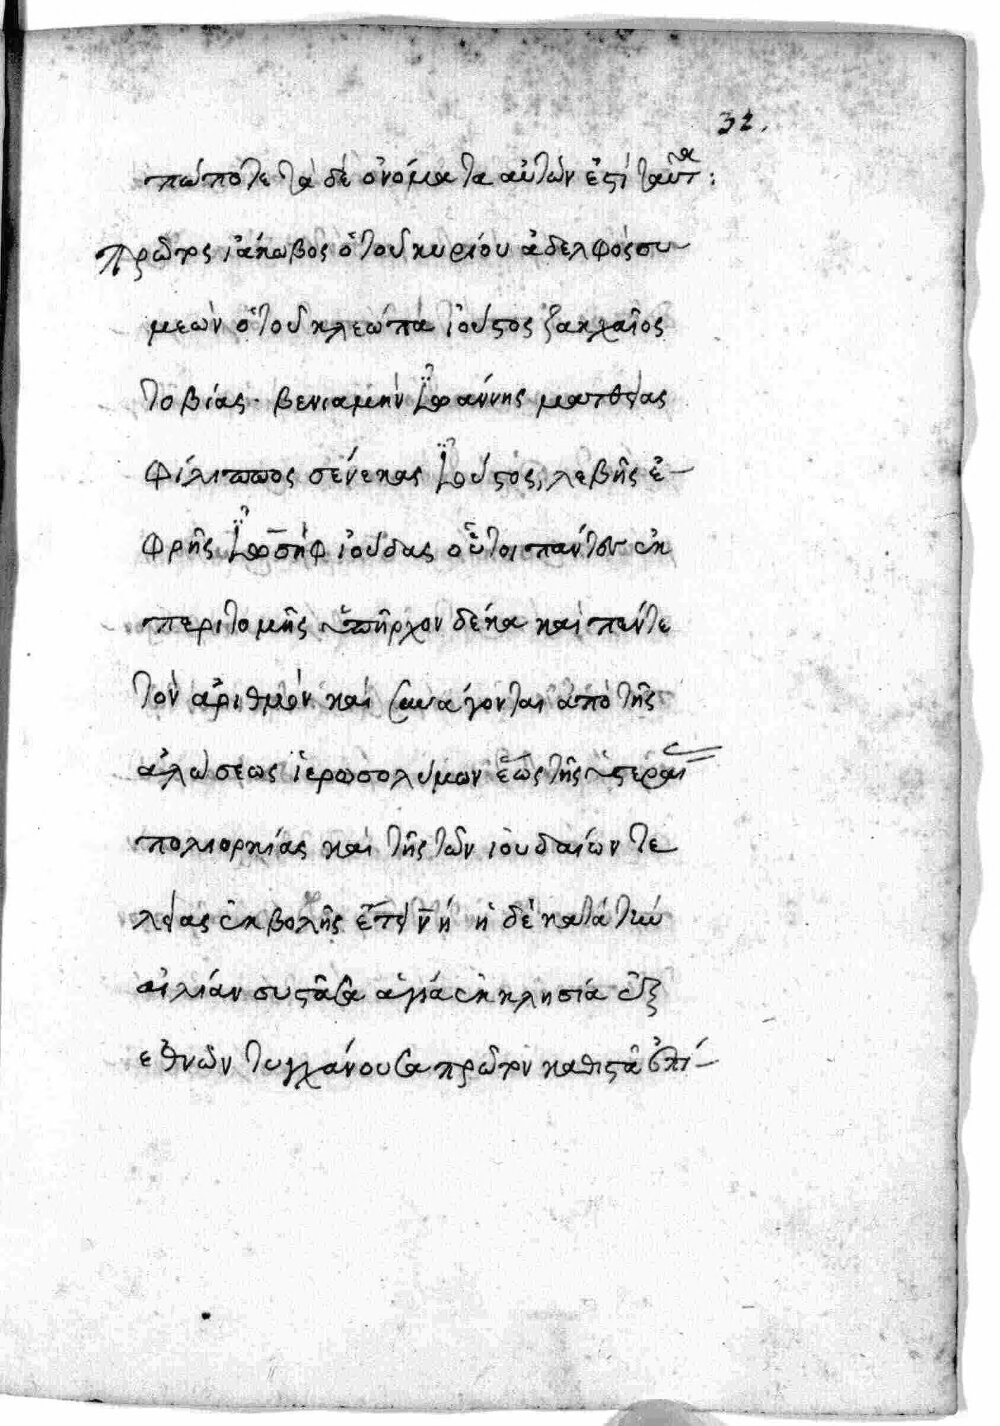 32.
πώποτε τὰ δὲ ὀνόματα αὐτῶν ἐστί ταῦτα:
πρῶτος ἰάκωβος ὁ τοῦ κυρίου ἀδελφὸς συ
μεὼν ὁ τοῦ κλεώπα ἰοῦστος ζακχαῖος
τοβίας · βενιαμὴν ἰωαννης ματθίας
φίλιππος σένεκας ἰοῦστος, λεβῆς ἐ-
φρῆς ἰωσὴφ ἰούδας οὗτοι πάντες ἐκ
περιτομῆς ὑπῆρχον δέκα καὶ πέντε
τὸν ἀριθμὸν καὶ συνάγονται ἀπὸ τῆς
ἁλώσεως ἱεροσολύμων ἕως τῆς ὑστέρας
πολιορκίας καὶ τῆς τῶν ιουδαίων τε
λείας ἐκβολῆς ἔτει ν̄ή ἡ δὲ κατὰ τὴν
αἰλίαν συστᾶσα ἁγία ἐκκλησία ἐξ
εθνῶν τυγχάνουσα πρῶτον καθιστᾶ ἐπί-